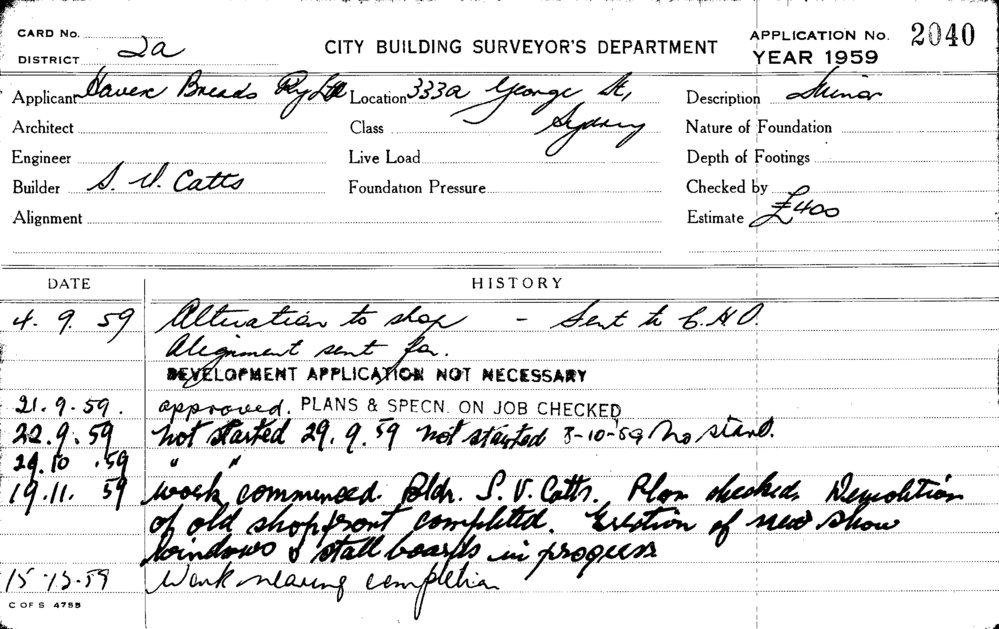 CARD No.
DISTRICT 2a
CITY BUILDING SURVEYOR'S DEPARTMENT
APPLICATION No. 2040
YEAR 1959
Applicant Haven Breads Pty Ltd Location 333a George St, Description Minor
Architect Class Sydney Nature of Foundation
Engineer Live Load Depth of Footings
Builder S. V. Catts Foundation Pressure Checked by
Alignment Estimate £400
DATE HISTORY
4. 9. 59 Alteration to shop - Sent to C.H.O.
Alignment sent for.
DEVELOPMENT APPLICATION NOT NECESSARY
21. 9. 59. approved. PLANS & SPECN. ON JOB CHECKED
22. 9. 59 not started 29. 9. 59 not started 8-10-59 No start.
29. 10. 59 " "
19. 11. 59 work commenced. Bldr. S. V. Catts. Plan checked. Demolition
of old shopfront completed. Erection of new show
windows & stall boards in progress
15-12-59 Work nearing completion
C OF S 4755